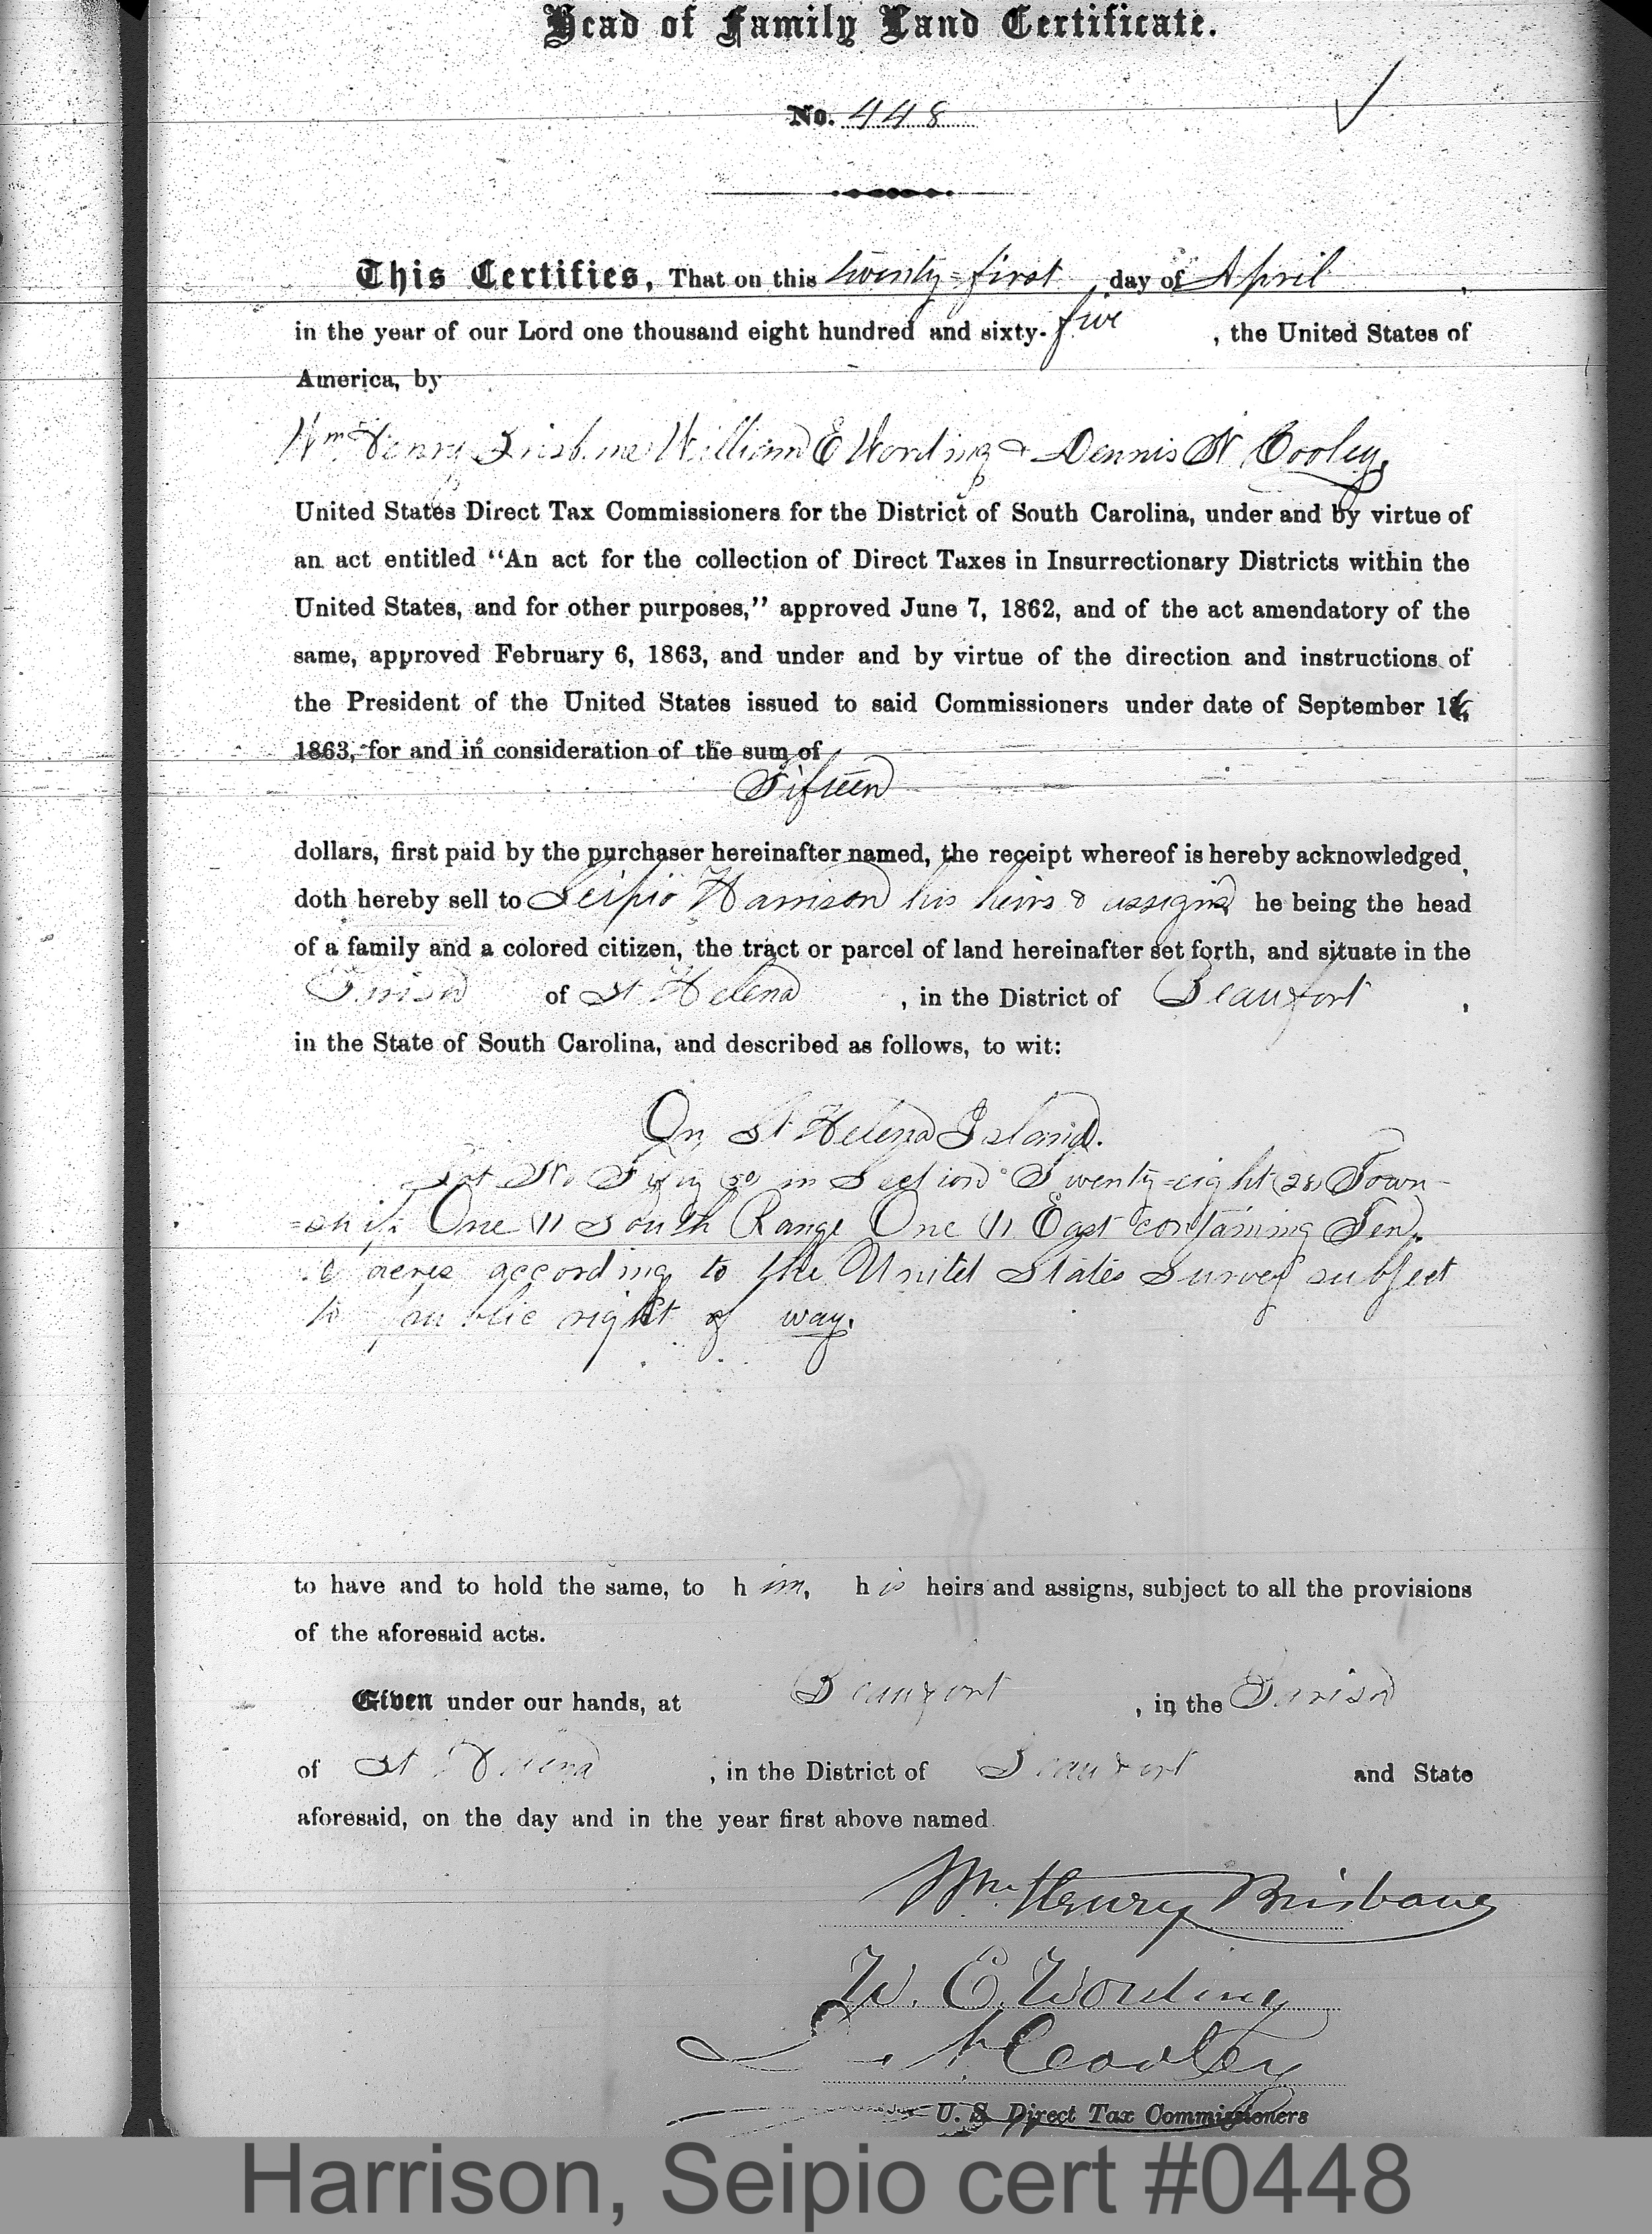 Head of Family Land Certificate.
No. 448
This Certifies, That on this twenty-first, day of April,
in the year of our Lord one thousand eight hundred and sixty-five, the United States of
America, by
Wm Henry Brisbane William E Wording & Dennis N Cooley,
United States Direct Tax Commissioners for the District of South Carolina, under and by virtue of
an act entitled “An act for the collection of Direct Taxes in Insurrectionary Districts within the
United States, and for other purposes,” approved June 7, 1862, and of the act amendatory of the
same, approved February 6, 1863, and under and by virtue of the direction and instructions of
the President of the United States issued to said Commissioners under date of September 16,
1863, for and in consideration of the sum of
Fifteen
dollars, first paid by the purchaser hereinafter named, the receipt whereof is hereby acknowledged,
doth hereby sell to Scipio Harrison his heirs & assigns he being the head
of a family and a colored citizen, the tract or parcel of land hereinafter set forth, and situate in the
Parish of St Helena, in the District of Beaufort,
in the State of South Carolina, and described as follows, to wit:
On St Helena Island.
Lot No in Section Twenty-eight (28) Town-
=ship One (1) South Range One (1) East containing Ten
acres according to the United States Survey subject
to public right of way.
to have and to hold the same, to him, his heirs and assigns, subject to all the provisions
of the aforesaid acts.
Given under our hands, at Beaufort, in the Parish
of St Helena, in the District of Beaufort and State
aforesaid, on the day and in the year first above named.
Wm. Henry Brisbane
W. E. Wording
D. N. Cooley
U. S. Direct Tax Commissioners
Harrison, Seipio cert #0448